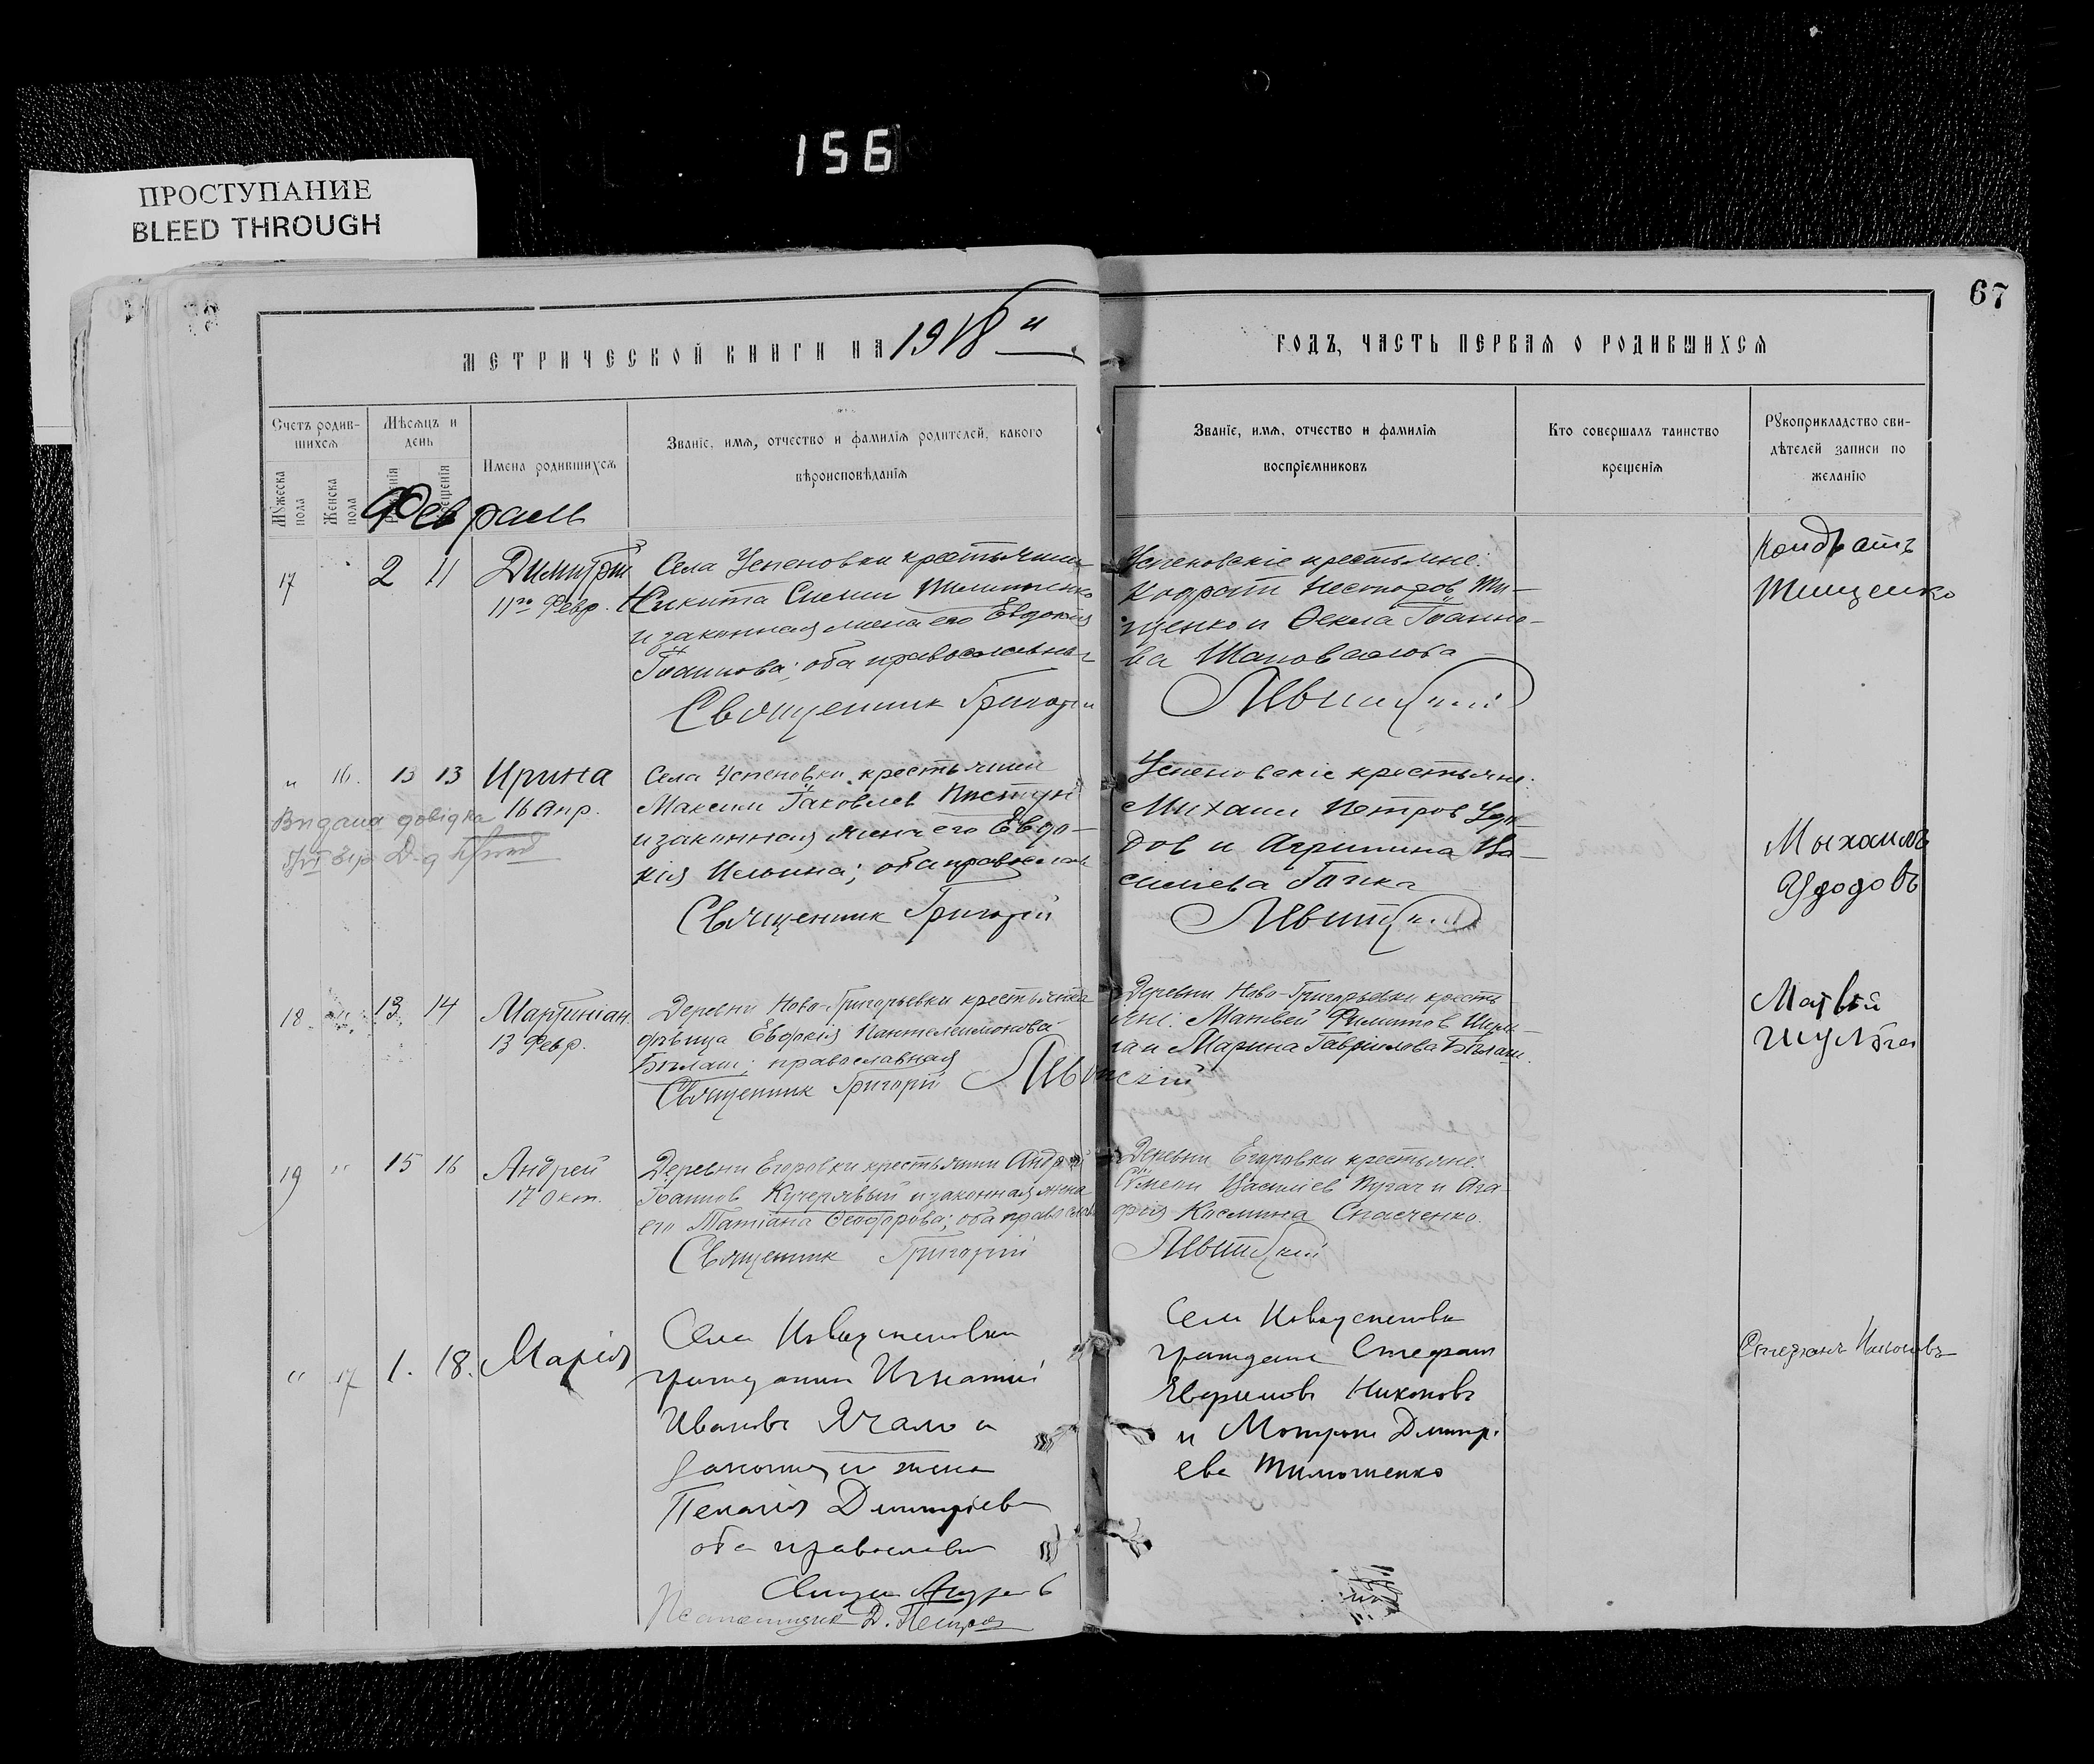 156
ПРОСТУПАНИЕ
BLEED THROUGH
67
МЕТРИЧЕСКОЙ КНИГИ НА 1918 й
ГОДЪ, ЧАСТЬ ПЕРВАЯ О РОДИВШИХСЯ
Счетъ родив-
шихся
Мѣсяцъ и
день
Мужеска
пола
Женска
пола
Имена родившихся
Званіе, имя, отчество и фамилія родителей, какого
вѣроисповѣданія
Званіе, имя, отчество и фамилія
воспріемниковъ
Кто совершалъ таинство
крещенія
Рукоприкладство сви-
дѣтелей записи по
желанію
Февраль
17 2 11 Димитрій
11го Февр.
Села Успеновки крестьянинъ
Никита Тимошенко
и законная жена его Евдокія
Іоаннова; оба православные
Священник Григорий
Успеновскіе крестьяне:
Ти-
щенко и Ѳекла Іоанно-
ва Шаповалова
Левицкий
Кондратъ
Тищенко
" 16. 13 13 Ирина
16 Апр.
Видана довідка
Села Успеновки крестьянин
Максим Іаковлев
и законная жена его Евдо-
кія Ильина; оба православ
Священник Григорій
Успеновскіе крестьяне:
Михаил Петров Удо-
дов и Агрипина Ва-
силіева
Левицкий
Мыхаилъ
Удодовъ
18 " 13 14 Мартиніан.
13 Февр.
Деревни Ново-Григорьевки крестьянка
дѣвица Евдокія Пантелеимонова
Бѣлаш; православная
Священник Григорій Левицкій
Деревни Ново-Григорьевки кресть-
яне: Матвей Филиппов Шуль-
га и Марина Гавриилова Бѣлаш.
Матвѣй
Шульга
19 " 15 16 Андрей
17 Окт.
Деревни Егоровки крестьянин Андрей
Іоаннов Кучерявый и законная жена
его Татіана Ѳеодорова; оба православ
Священник Григорій
Деревни Егоровки крестьяне:
Василіев Пугач и Ага-
фія Космина Спасченко.
Левицкий
" 17 1. 18. Марія
Села Новоуспеновки
гражданин Игнатий
Ивановъ Ячало и
законная его жена
Пелагія Димитріева
оба православн
Псаломщик Д. Петров
Села Новоуспеновки
граждане Стефан
Ефримовъ Никоновъ
и Мотрона Димитр-
ева Тимошенко
Стефанъ Никоновъ